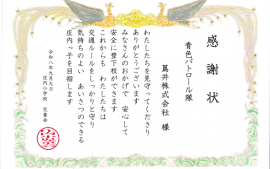 感謝状
青色パトロール隊
萬井株式会社 様
わたしたちを見守ってくださり
ありがとうございます
みなさんのおかげで 安心して
安全に登下校ができます
これからも わたしたちは
交通ルールをしっかりと守り
気持ちのよい あいさつのできる
庄内っ子を目指します
令和八年九月九日
庄内小学校 児童会